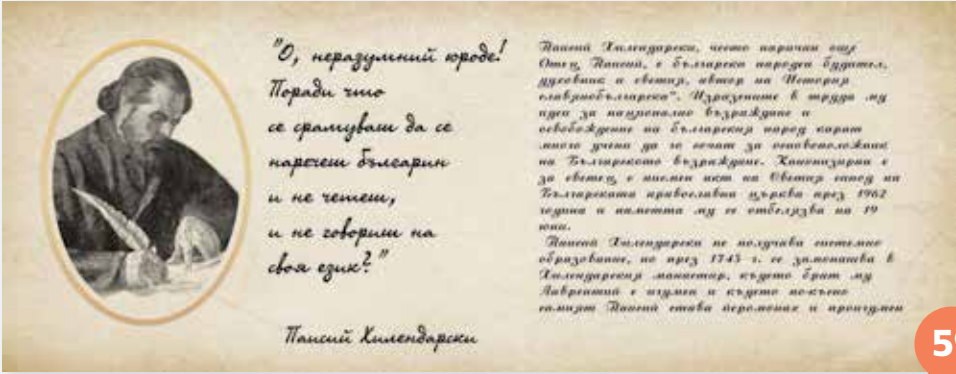 "О, неразумний юроде!
Поради что
се срамуваш да се
наречеш българин
и не четеш,
и не говориш на
своя език?"
Паисий Хилендарски
Паисий Хилендарски, често наричан още
Отец Паисий, е български народен будител,
духовник и светия, автор на "История
славянобългарска". Изразените в труда му
идеи за национално възраждане и
освобождение на българския народ карат
много учени да го сочат за основоположник
на Българското възраждане. Канонизиран е
за светец с писмен акт на Светия синод на
Българската православна църква през 1962
година и паметта му се отбелязва на 19
юни.
Паисий Хилендарски не получава системно
образование, но през 1745 г. се замонашва в
Хилендарския манастир, където брат му
Лаврентий е игумен и където по-късно
самият Паисий става йеромонах и проигумен